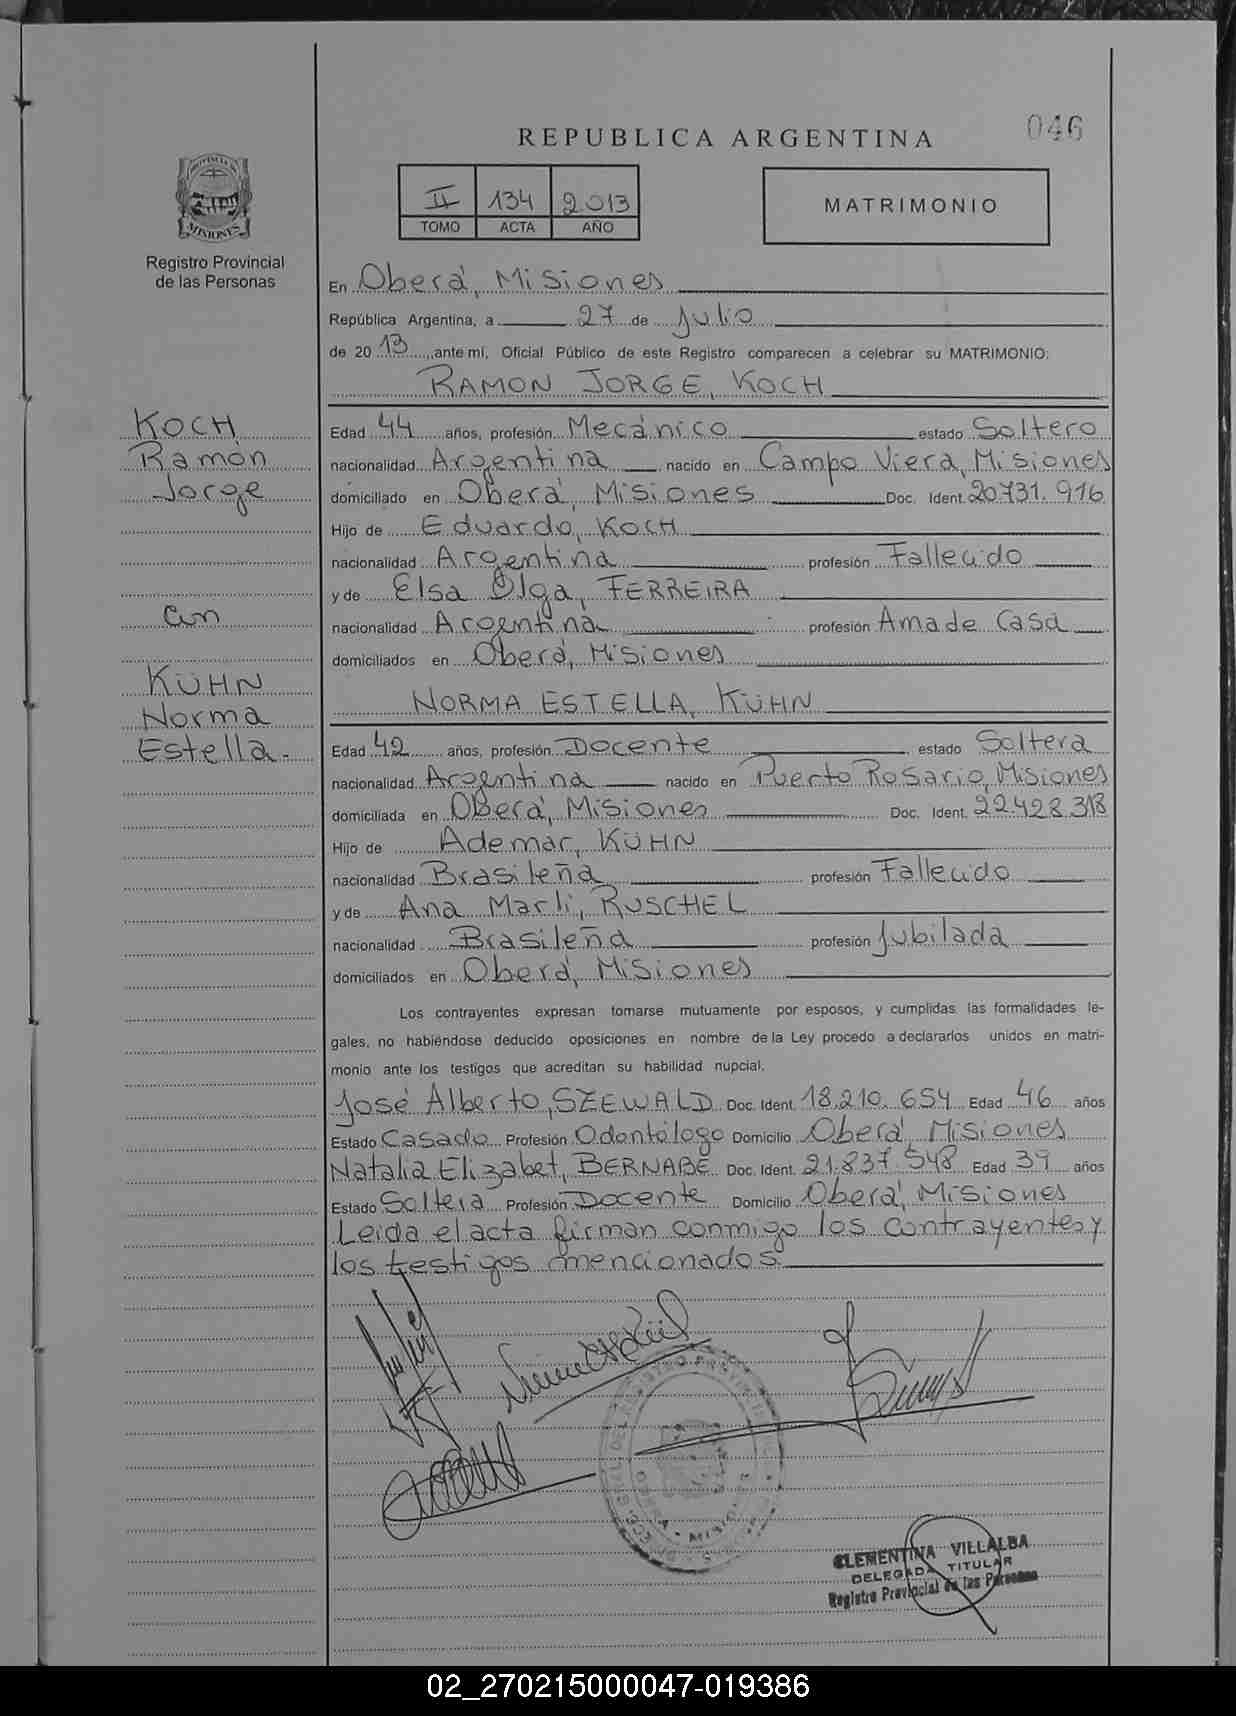 046
REPUBLICA ARGENTINA
II 134 2013
TOMO ACTA AÑO
MATRIMONIO
PROVINCIA DE
MISIONES
Registro Provincial
de las Personas
En Oberá, Misiones
República Argentina, a 27 de Julio
de 20 13, ante mí, Oficial Público de este Registro comparecen a celebrar su MATRIMONIO:
RAMON JORGE, KOCH
KOCH
Ramón
Jorge
con
KÜHN
Norma
Estella.-
Edad 44 años, profesión Mecánico estado Soltero
nacionalidad Argentina nacido en Campo Viera, Misiones
domiciliado en Oberá, Misiones Doc. Ident. 20.731.916
Hijo de Eduardo, KOCH
nacionalidad Argentina profesión Fallecido
y de Elsa Olga, FERREIRA
nacionalidad Argentina profesión Ama de Casa
domiciliados en Oberá, Misiones
NORMA ESTELLA, KÜHN
Edad 42 años, profesión Docente estado Soltera
nacionalidad Argentina nacido en Puerto Rosario, Misiones
domiciliada en Oberá, Misiones Doc. Ident. 22.428.318
Hijo de Ademar, KÜHN
nacionalidad Brasileña profesión Fallecido
y de Ana Marli, RUSCHEL
nacionalidad Brasileña profesión Jubilada
domiciliados en Oberá, Misiones
Los contrayentes expresan tomarse mutuamente por esposos, y cumplidas las formalidades le-
gales, no habiéndose deducido oposiciones en nombre de la Ley procedo a declararlos unidos en matri-
monio ante los testigos que acreditan su habilidad nupcial.
José Alberto, SZEWALD Doc. Ident. 18.210.654 Edad 46 años
Estado Casado Profesión Odontólogo Domicilio Oberá, Misiones
Natalia Elizabet, BERNABE Doc. Ident. 21.837.548 Edad 39 años
Estado Soltera Profesión Docente Domicilio Oberá, Misiones
Leida el acta firman conmigo los contrayentes y
los testigos mencionados.
CLEMENTINA VILLALBA
DELEGADA TITULAR
Registro Provincial de las Personas
02_270215000047-019386